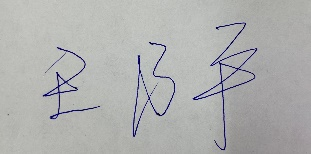 王乃平